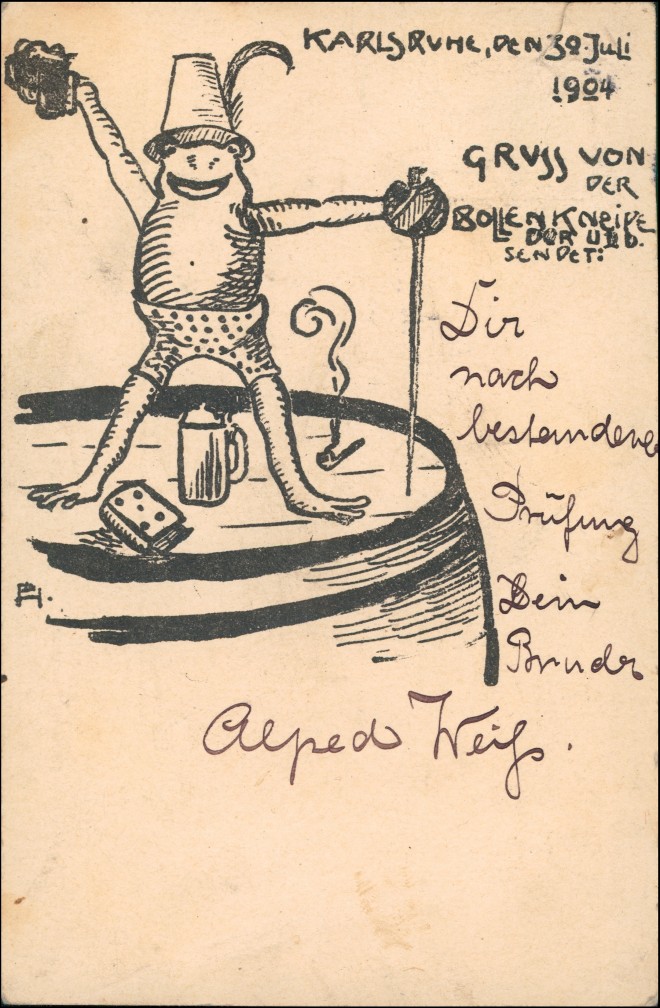 KARLSRUHE, DEN 30. JULI
1904
GRUSS VON
DER
BOLLENKNEIPE
DER
SENDET:
Dir
nach
bestandener
Prüfung
Dein
Bruder
Alfred Weiß.